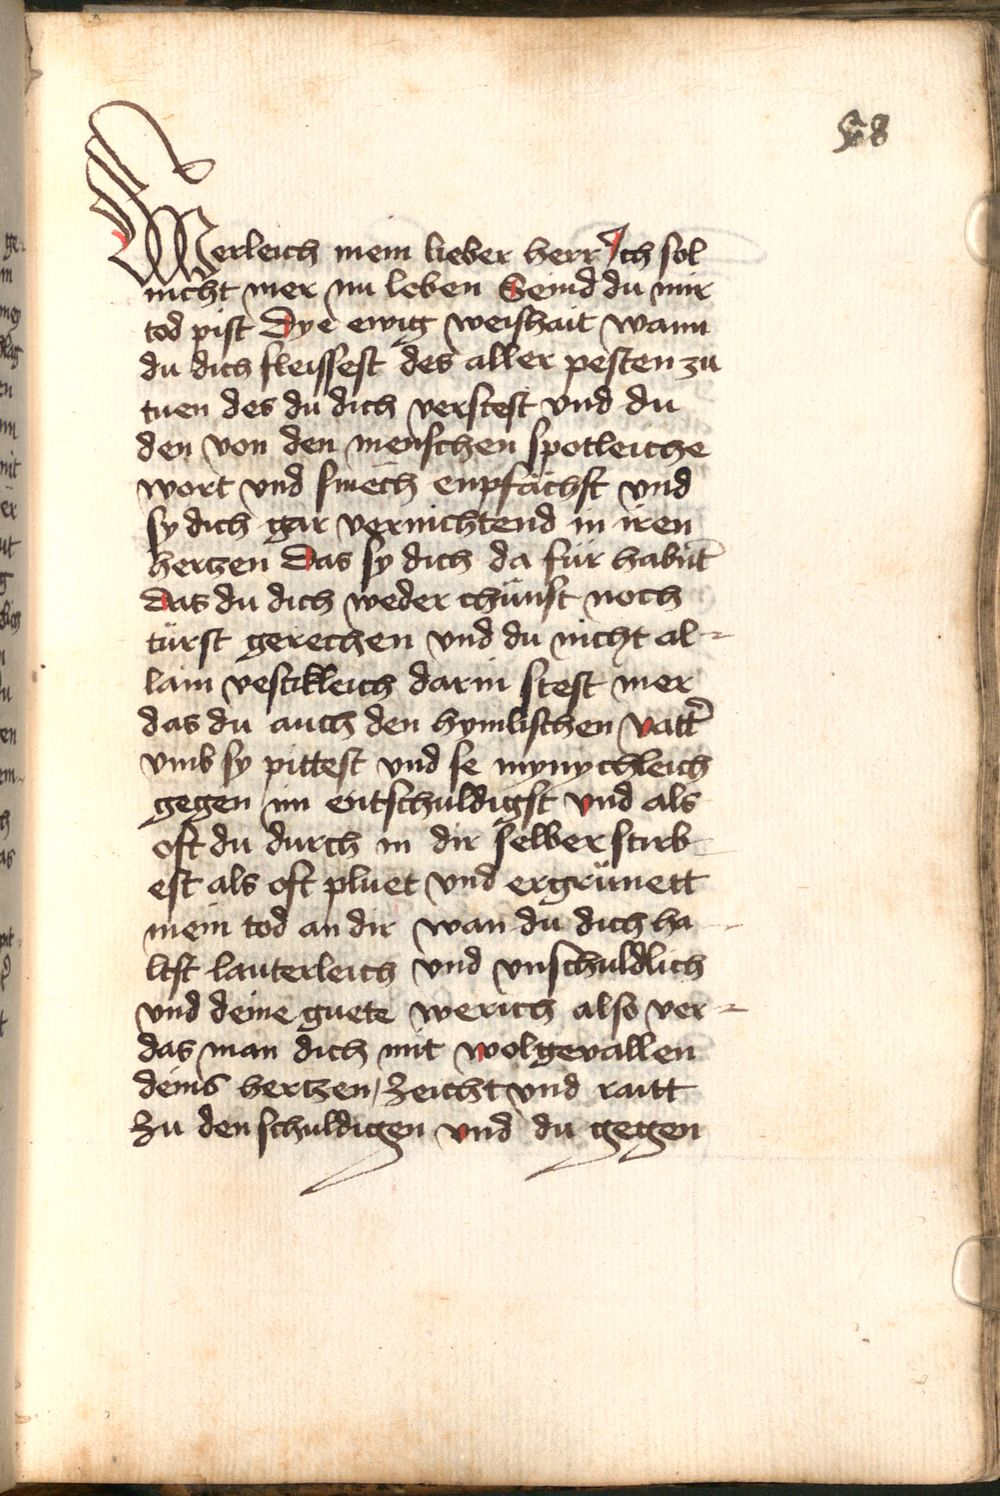 58
Werleich mein lieber herr Ich sol
nicht mer nu leben Seind du mir
tod pist Dye ewig weishait wann
du dich fleissest des aller pesten zu
tuen des du dich verstest vnd du
den von den menschen spotleiche
wort vnd smech enpfächst vnd
sy dich gar vernichtend in iren
hertzen Das sy dich da für habnt
Das du dich weder chünst noch
türst gerechen vnd du nicht al-
lain vestikleich darin stest mer
das du auch den hymlischen vatter
vmb sy pittest vnd se mynychleich
gegen im entschuldigst vnd als
oft du durch in dir selber stirb-
est als oft pluet vnd ergrünett
mein tod an dir wan du dich ha-
ltst lauterleich vnd vnschuldlich
vnd deine guete werich also ver-
das man dich mit wolgevallen
deins hertzen, zeicht vnd raitt
zu den schuldigen vnd du gegen